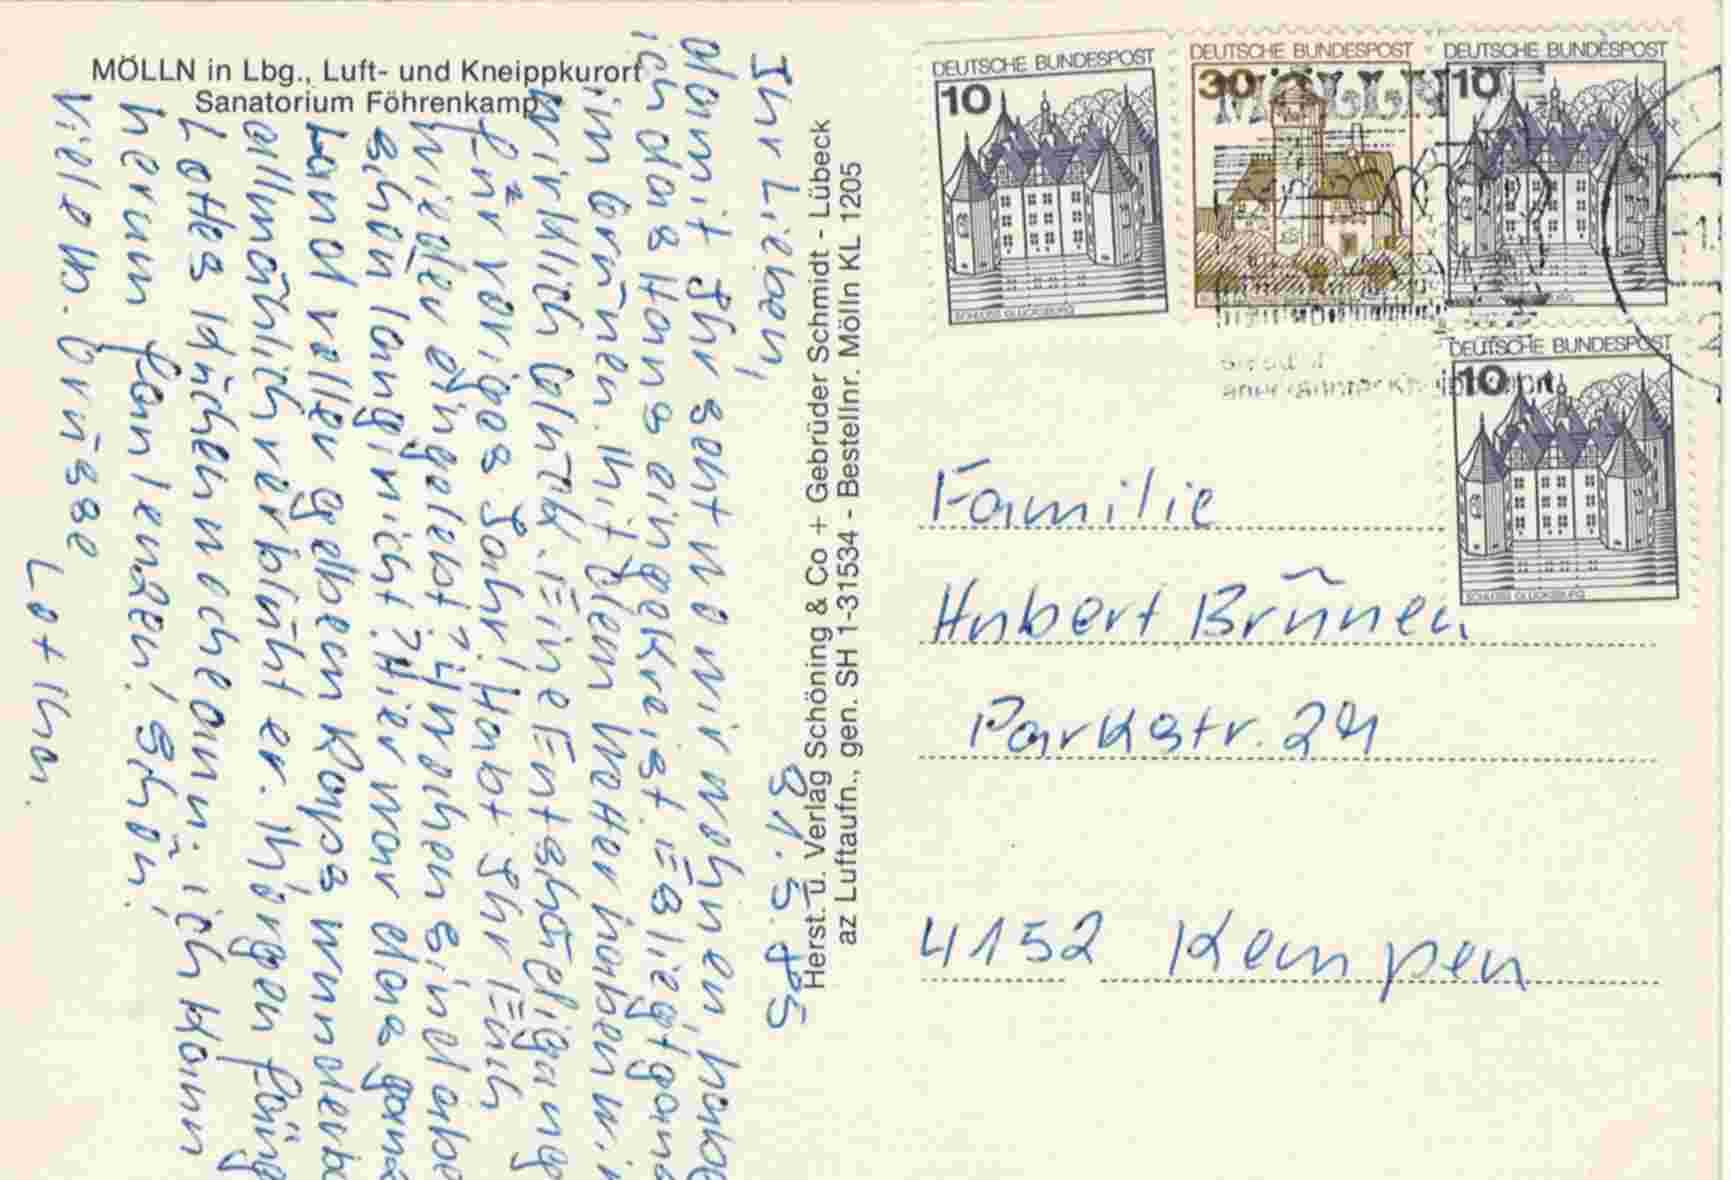 MÖLLN in Lbg., Luft- und Kneippkurort
Sanatorium Föhrenkamp
31.5.85
Ihr Lieben,
damit Ihr seht wo wir wohnen, habe
ich das Haus eingekreist. Es liegt ganz
im Grünen. Mit dem Wetter haben wir
wirklich Glück. Eine Entschädigung
für voriges Jahr! Habt Ihr Euch
wieder eingelebt? 4 Wochen sind aber
schön lang, nicht? Hier war das ganze
Land voller gelbem Raps wunderbar
allmählich verblüht er. Morgen fängt
Lottes Kuchenwoche an. ich kann
herum faulenzen! Schön!
Viele lb. Grüsse
Lothar.
Herst. u. Verlag Schöning & Co + Gebrüder Schmidt - Lübeck
az Luftaufn., gen. SH 1-31534 - Bestellnr. Mölln KL 1205
DEUTSCHE BUNDESPOST
10
SCHLOSS GLÜCKSBURG
DEUTSCHE BUNDESPOST
30
DEUTSCHE BUNDESPOST
10
MÖLLN
DEUTSCHE BUNDESPOST
10
SCHLOSS GLÜCKSBURG
Familie
Hubert Brünen
Parkstr. 24
4152 Kempen